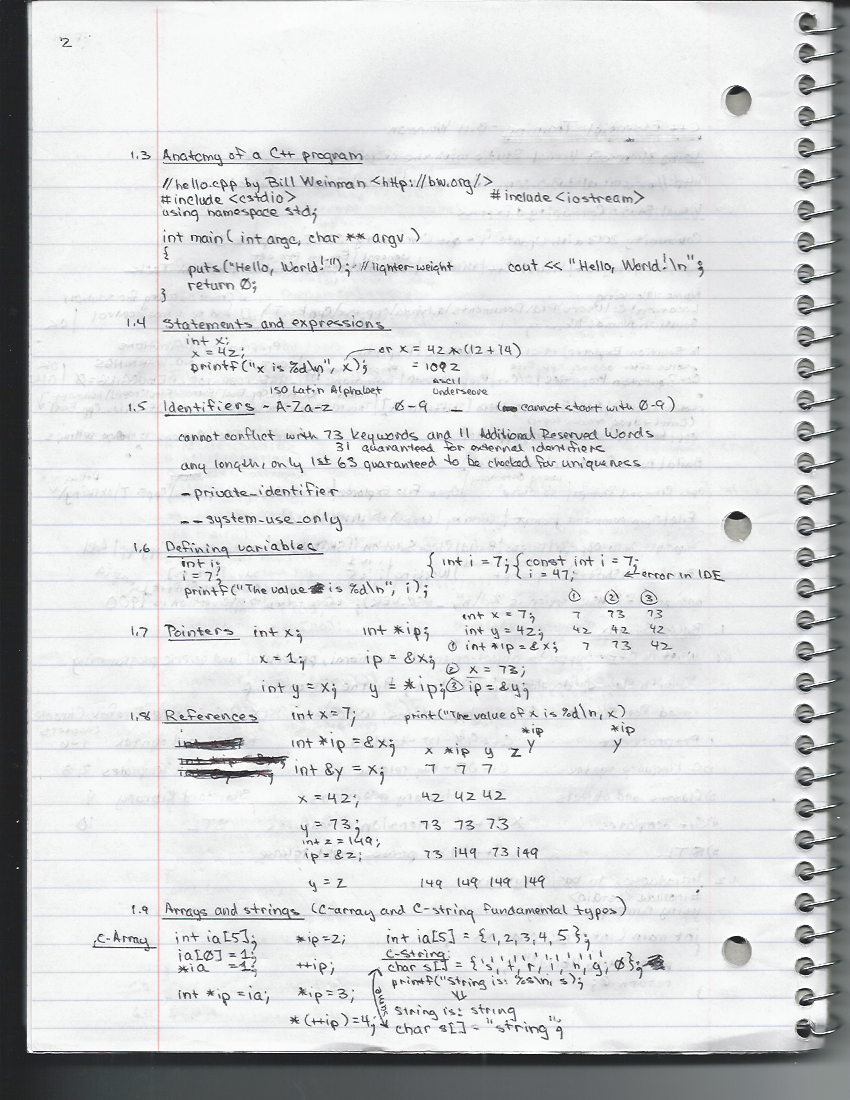 2
1.3 Anatomy of a C++ program
//hello.cpp by Bill Weinman <http://bw.org/>
#include <cstdio> #include <iostream>
using namespace std;
int main( int argc, char ** argv )
{
puts("Hello, World!"); //lighter-weight cout << "Hello, World!\n";
return 0;
}
1.4 Statements and expressions
int x;
x = 42; or x = 42 * (12 + 14)
printf("x is %d\n", x); = 1092
ISO Latin Alphabet ASCII Underscore
1.5 Identifiers ~ A-Za-z 0-9 _ (cannot start with 0-9)
cannot conflict with 73 keywords and 11 Additional Reserved Words
31 guaranteed for external identifiers
any length, only 1st 63 guaranteed to be checked for uniqueness
_private_identifier
__system_use_only
1.6 Defining variables
int i; { int i = 7; { const int i = 7;
i = 7; i = 47; ← error in IDE
printf("The value is %d\n", i);
① ② ③
int x = 7; 7 73 73
1.7 Pointers int x; int *ip; int y = 42; 42 42 42
① int *ip = &x; 7 73 42
x = 1; ip = &x; ② x = 73;
int y = x; y = *ip; ③ ip = &y;
1.8 References int x = 7; print("The value of x is %d\n, x)
*ip *ip
int *ip = &x; x *ip y z y y
int &y = x; 7 7 7
x = 42; 42 42 42
y = 73; 73 73 73
int z = 149;
ip = &z; 73 149 73 149
y = z 149 149 149 149
1.9 Arrays and strings (C-array and C-string fundamental types)
C-Array int ia[5]; *ip = 2; int ia[5] = {1,2,3,4,5};
ia[0] = 1; C-string
*ia = 1; ++ip; char s[] = {'s','t','r','i','n','g',0};
printf("String is: %s\n, s);
int *ip = ia; *ip = 3; same
string is: string
*(++ip) = 4; char s[] = "string";